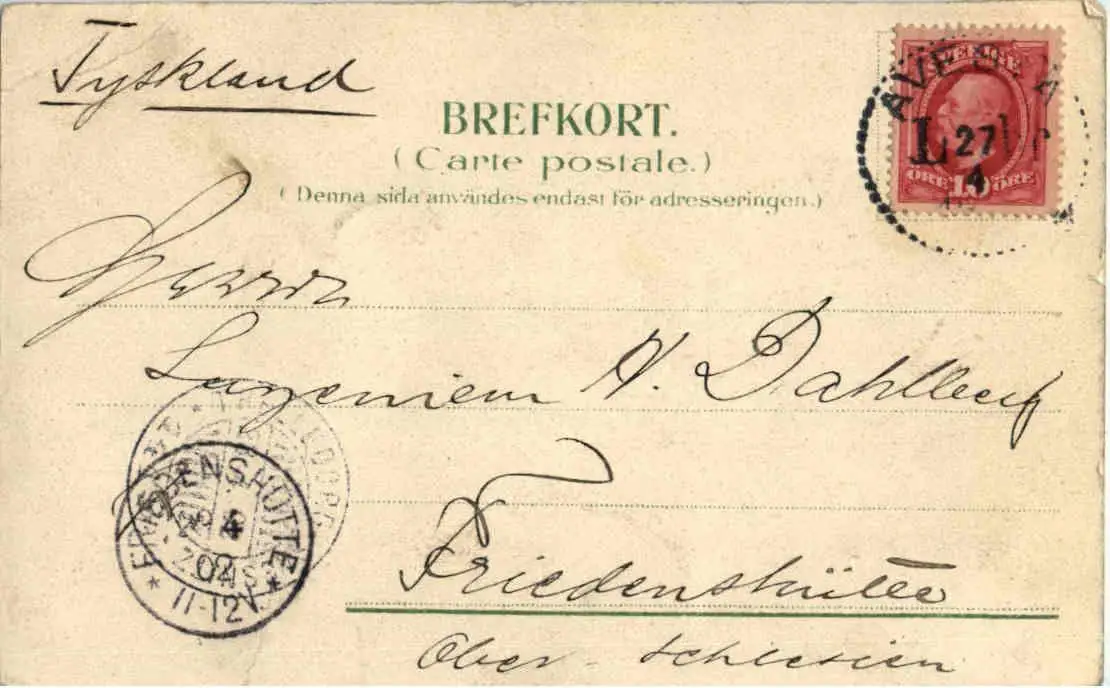 Tyskland
BREFKORT.
(Carte postale.)
(Denna sida användes endast för adresseringen.)
SVERIGE
AVESTA
27
4
ÖRE 10 ÖRE
Herrn
Ingenieur H. Dahlleuf
Friedenshütte
Ober-Schlesien
FRIEDENSHÜTTE
4
02
11-12V